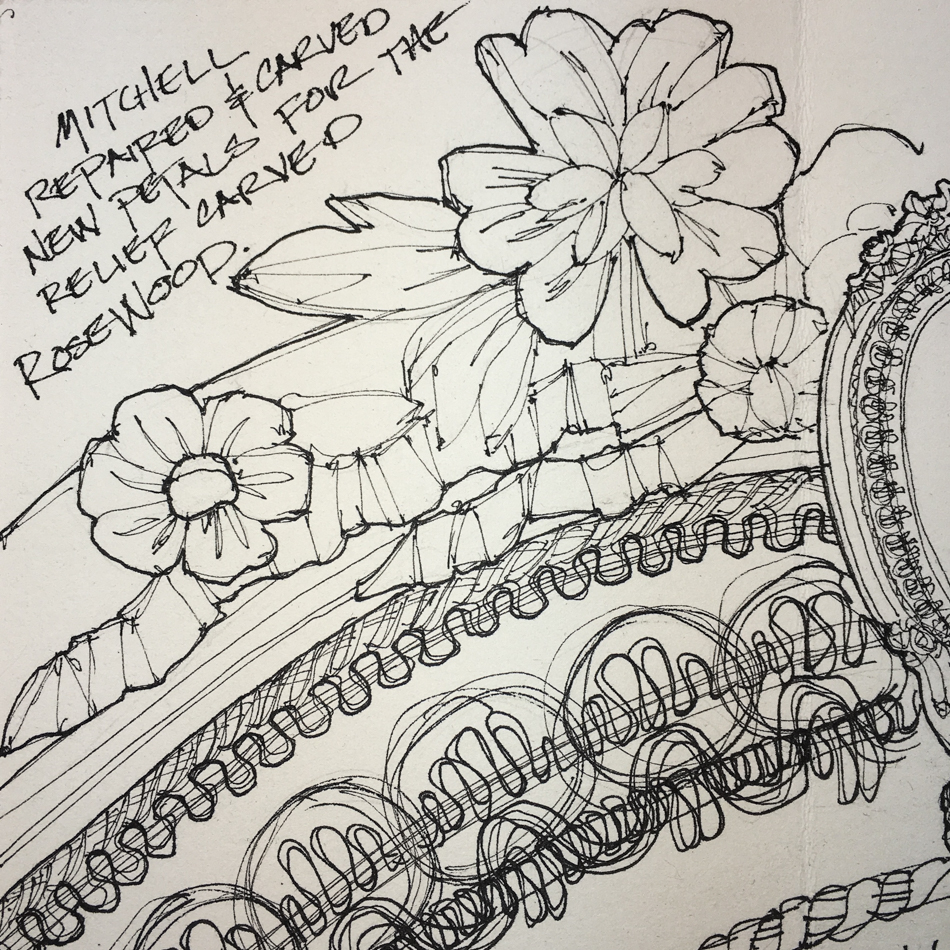 MITCHELL
REPAIRED & CARVED
NEW PETALS FOR THE
RELIEF CARVED
ROSEWOOD.